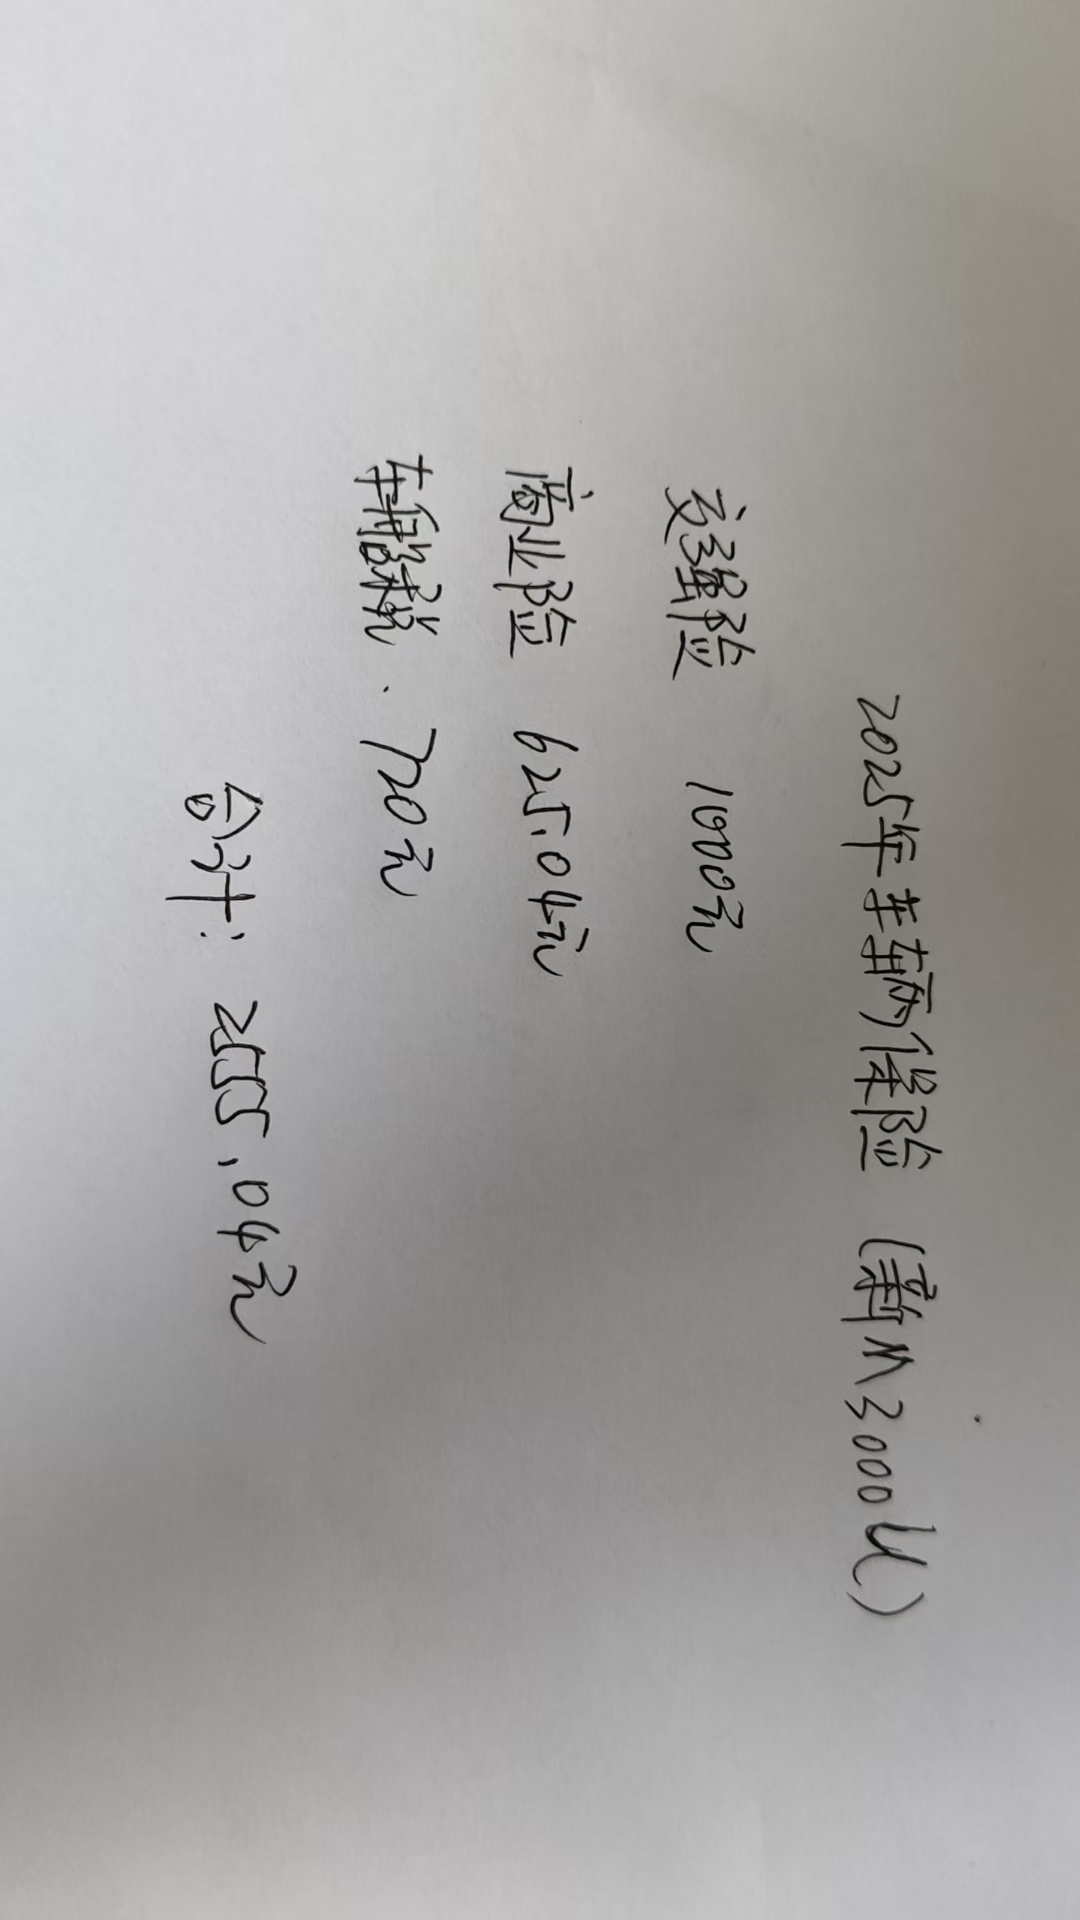 2025年车辆保险 (新M3000U)
交强险 1000元
商业险 625.04元
车船税. 720元
合计: 2555.04元